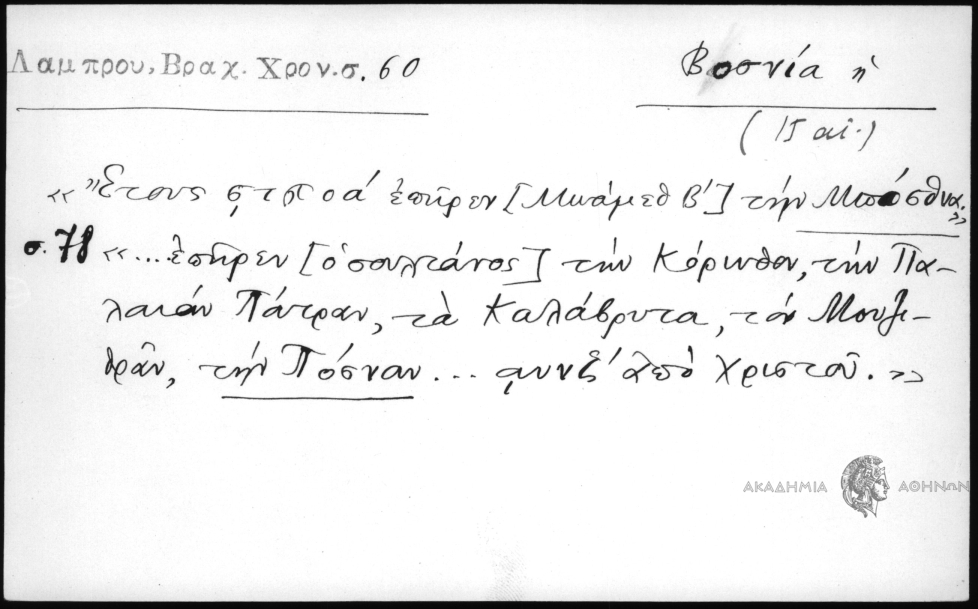 Λαμπρου, Βραχ. Χρον. σ. 60
Βοσνία ἡ
(15 αἰ.)
« "Ετους ϛτποα' ἐπῆρεν [Μωάμεθ Β'] τὴν Μπόσθνα.»
σ. 78 «...ἐπῆρεν [ὁ σουλτάνος] τὴν Κόρινθον, τὴν Πα-
λαιὰν Πάτραν, τὰ Καλάβρυτα, τὸν Μουζη-
θρᾶν, τὴν Πόσναν... ͵αυνξ' ἀπὸ Χριστοῦ.»
ΑΚΑΔΗΜΙΑ ΑΘΗΝΩΝ